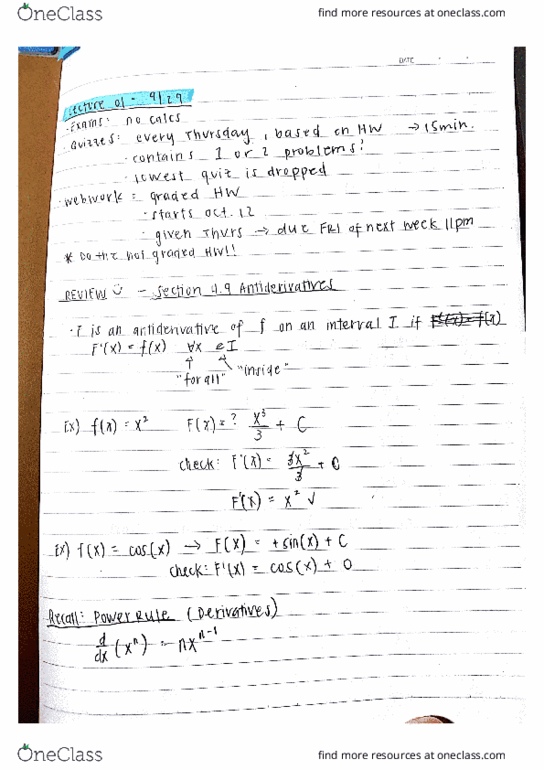 OneClass
find more resources at oneclass.com
DATE
Lecture 01 - 9/29
· Exams: no calcs
· Quizzes: every Thursday, based on HW → 15min.
· contains 1 or 2 problems!
· lowest quiz is dropped
· webwork = graded HW
· starts Oct. 12
· given Thurs → due FRI of next week 11pm
* Do the not graded HW!!
REVIEW - Section 4.9 Antiderivatives
· F is an antiderivative of f on an interval I if F'(x) = f(x)
F'(x) = f(x) ∀x ∈ I
"for all" "inside"
Ex) f(x) = x² F(x) = ? x³/3 + C
check: F'(x) = 3x²/3 + 0
F'(x) = x² √
Ex) f(x) = cos(x) → F(x) = +sin(x) + C
check: F'(x) = cos(x) + 0
Recall: Power Rule (Derivatives)
d/dx (xⁿ) = nxⁿ⁻¹
OneClass
find more resources at oneclass.com